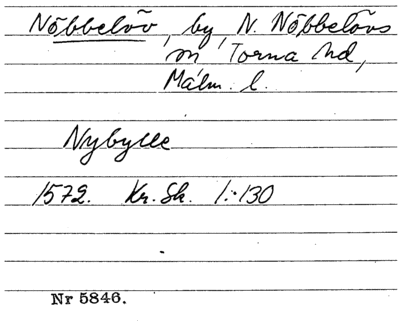 Nöbbelöv, by, N. Nöbbelövs
sn Torna hd,
Malm. l.
Nybylle
1572. Kr. Sk. 1:130
Nr 5846.